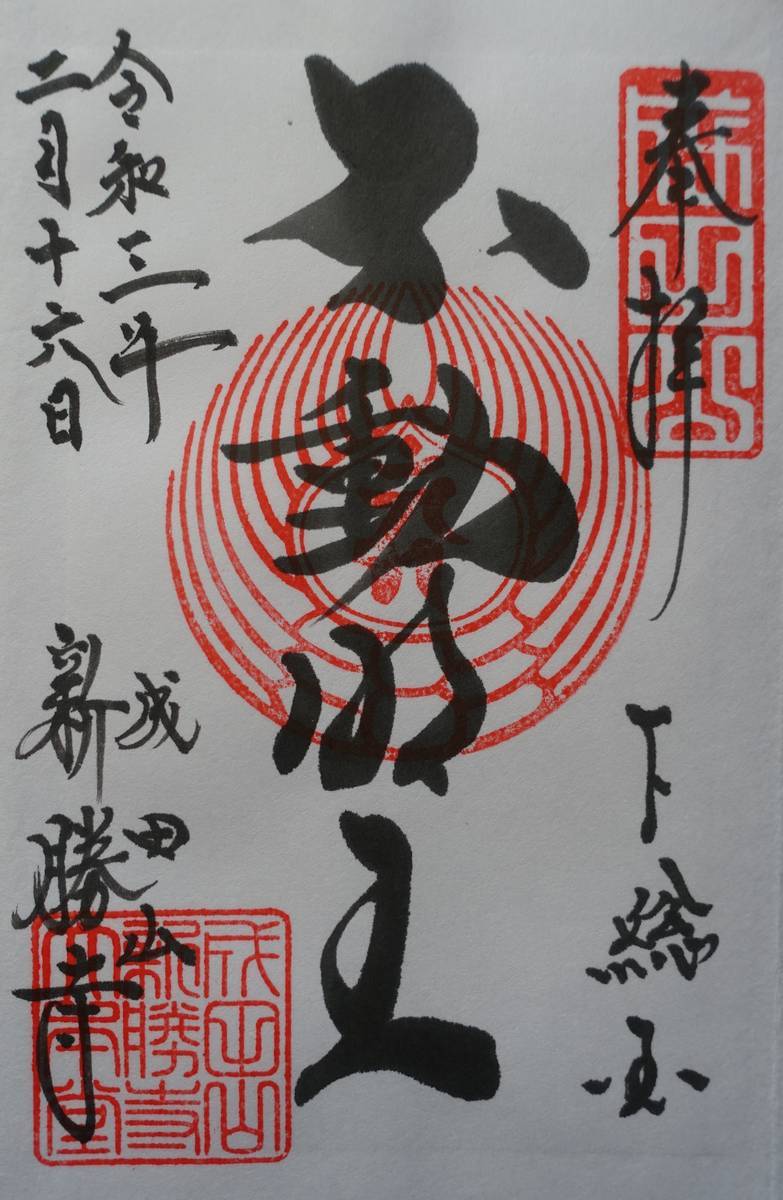 奉拝
下総国
不動明王
令和三年
二月十六日
成田山
新勝寺
成田山
新勝寺